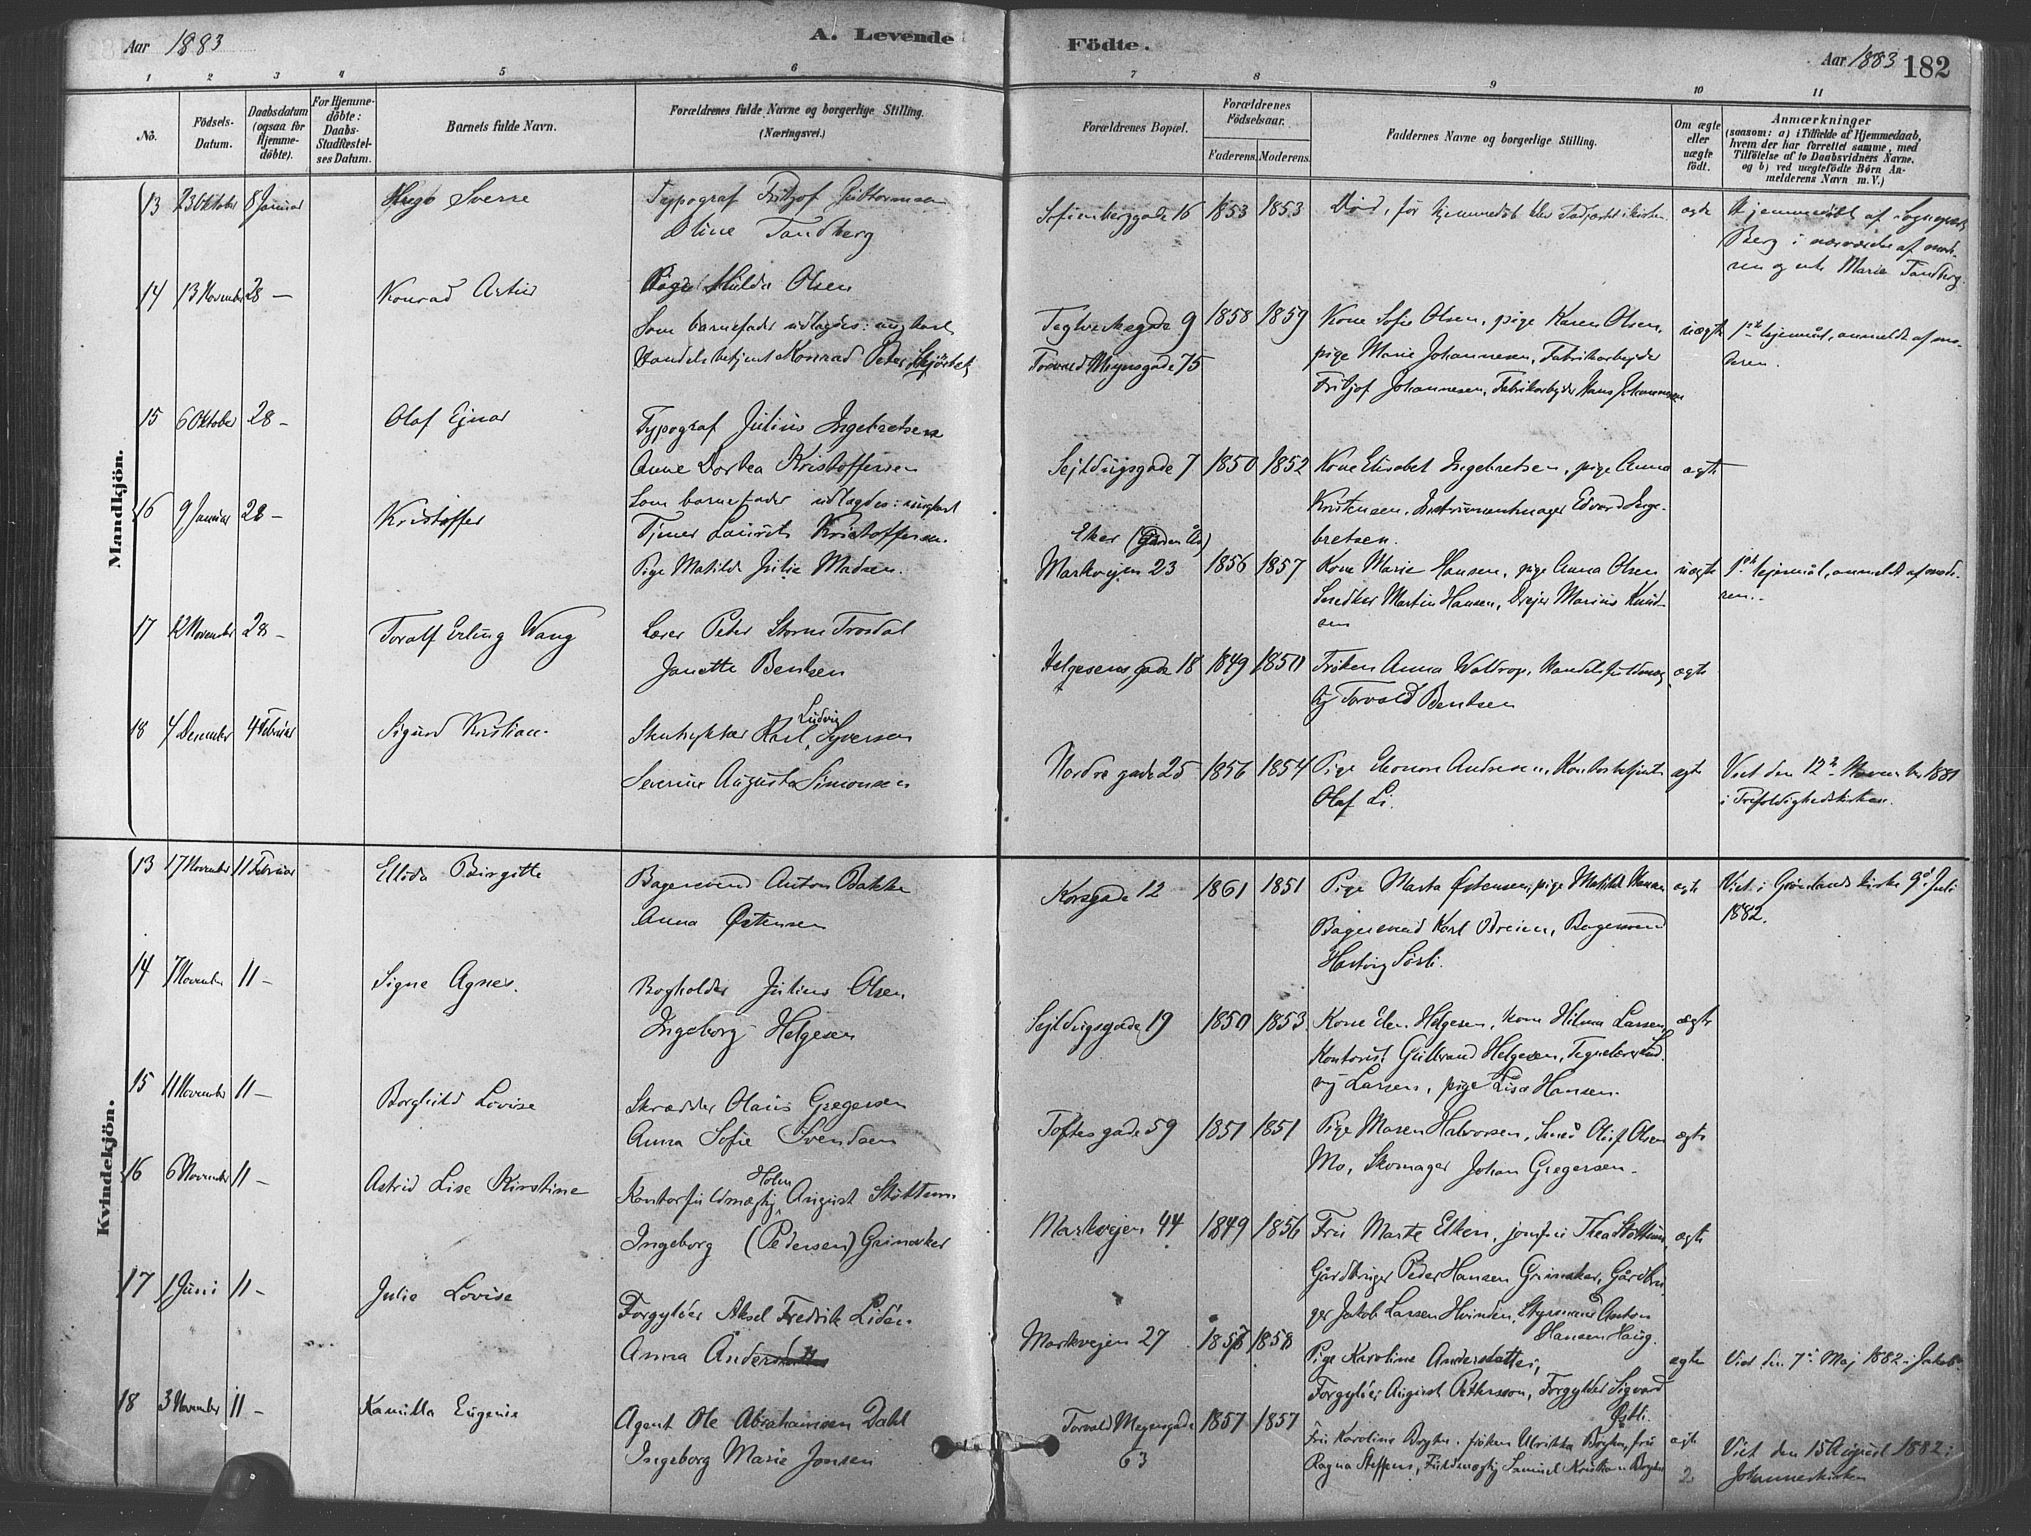 Aar 1883
A. Levende Födte.
Aar 1883
182
1 2 3 4 5 6 7 8 9 10 11
No.
Födsels-Datum.
Daabsdatum (ogsaa for Hjemmedöbte).
For Hjemmedöbte: Daabs-Stadfæstelses Datum.
Barnets fulde Navn.
Forældrenes fulde Navne og borgerlige Stilling. (Næringsvei.)
Forældrenes Bopæl.
Forældrenes Födselsaar.
Faderens. Moderens.
Faddernes Navne og borgerlige Stilling.
Om ægte eller uægte födt.
Anmærkninger
(saasom: a) i Tilfælde af Hjemmedaab, hvem der har forrettet samme, med Tilföielse af to Daabsvidners Navne, og b) ved uægtefödte Börn Anmelderens Navn m. V.)
Mandkjön.
13 23 Oktober 8 Januar Sverre Typograf Fritjof Guttormsen
Tandberg
Sofienberggade 16 1853 1853 Död, før ægte Hjemmedøbt af Sogneprest
Berg i nærværelse af mode-
ren og enke Marie Tandberg.
14 13 November 28 – Konrad Artur Pige Hulda Olsen
Som barnefader udlagdes: ungkarl
Handelsbetjent Konrad Peter
Teglverksgade 9 1858 1859 Kone Sofie Olsen, pige Karen Olsen, uægte 1ste lejermål, anmeldt af mo-
Torvald Meyersgade 75 pige Marie Johannesen, Fabrikarbejder deren.
Fritjof Johannesen, Fabrikarbejder Hans Johannesen
15 6 Oktober 28 – Olaf Ejnar Typograf Julius Ingebretsen
Anne Dortea Kristoffersen
Sejldugsgade 7 1850 1852 Kone Elisabet Ingebretsen, pige Anna ægte
Kristensen, Instrumentmager Edvard Inge-
bretsen.
16 9 Januar 28 – Kristoffer Som barnefader udlagdes: ungkarl
Tjener Laurits Kristoffersen.
Pige Matilde Julie Madsen.
Eker
Markvejen 23 1856 1857 Kone Marie Hansen, pige Anna Olsen uægte 1ste lejermål, anmeldt af mode-
Snedker Martin Hansen, Drejer Marius Knud- ren.
sen
17 12 November 28 – Toralf Erling Wang Lærer Peter Storm Trosdal
Janette Bentsen
Helgesens gade 18 1849 1850 Frøken Anna Waltrop, Handelsfuldmæg- ægte
tig Torvald Bentsen
18 4 December 4 Februar Sigurd Kristian. Karl Ludvig Syversen
Severine Augusta Simonsen
Nordre gade 25 1856 1854 Pige Eleonore Andresen, Kontorbetjent ægte Viet den 12te November 1881
Olaf Li. i Trefoldighedskirken.
Kvindekjön.
13 17 November 11 Februar Ellida Birgitte Bagersvend Anton Bakke
Anna Østensen
Korsgade 12 1861 1851 Pige Marta Østensen, pige Matilde Hansen ægte Viet i Grønlands kirke 9de Juli
Bagersvend Karl Breien, Bagersvend 1882.
Hartvig Sørli.
14 7 November 11 – Signe Agnes. Bogholder Julius Olsen
Ingeborg Helgesen
Sejldugsgade 19 1850 1853 Kone Elen Helgesen, kone Hilma Larsen, ægte
Kontorist Gulbrand Helgesen, Tegnelærer Lud-
vig Larsen, pige Lisa Hansen.
15 11 November 11 – Borghild Lovise Skrædder Olaus Gregersen
Anna Sofie Svendsen
Toftesgade 59 1851 1851 Pige Maren Halvorsen, Smed Oluf Olsen ægte
Mo, Skomager Johan Gregersen.
16 6 November 11 – Astrid Lise Kirstine Kontorfuldmægtig August Holm Støttum
Ingeborg (Pedersen) Grinaker
Markvejen 44 1849 1856 Fru Marte Elken, jomfru Thea Støttum, ægte
Gårdbruger Peder Hansen Grinaker, Gårdbru-
ger Jakob Larsen Hvinden, Styrmand Anton
Hansen Haug.
17 1 Juni 11 – Julie Lovise Forgylder Aksel Fredrik Lidén.
Anna
Markvejen 27 1858 Pige Karoline ægte Viet den 7de Maj 1882 i Jakobs
Forgylder August Pettersson, Forgylder Sigvard
Østli.
18 3 November 11 – Kamilla Eugenie Agent Ole Abrahamsen Dahl
Ingeborg Marie Jonsen
Torvald Meyersgade 63 1857 1857 Fru Karoline frøken Ulrikka fru ægte Viet den 15 August 1882 i
Ragna Steffens, Fuldmægtig Samuel Kristian Johanneskirken
2